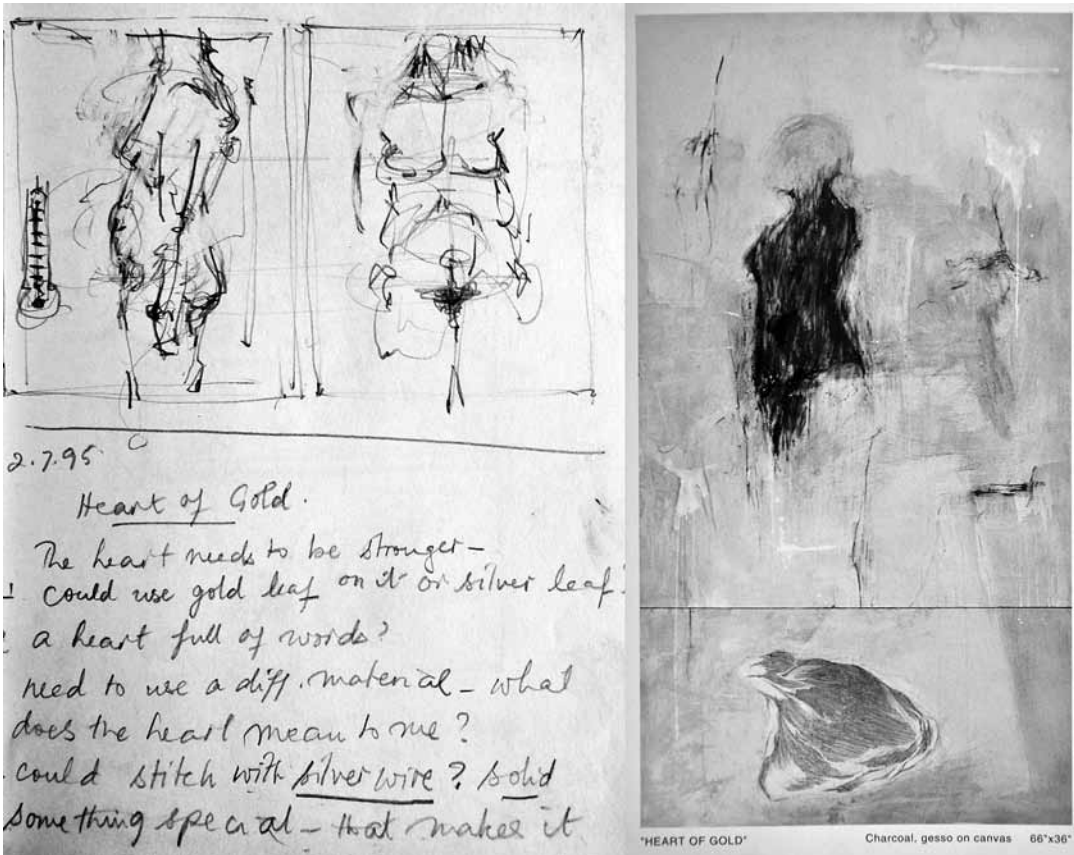 2.7.95
Heart of Gold.
The heart needs to be stronger –
could use gold leaf on it or silver leaf.
a heart full of words?
need to use a diff. material – what
does the heart mean to me?
could stitch with silver wire? solid
something special – that makes it
"HEART OF GOLD" Charcoal, gesso on canvas 66"x36"